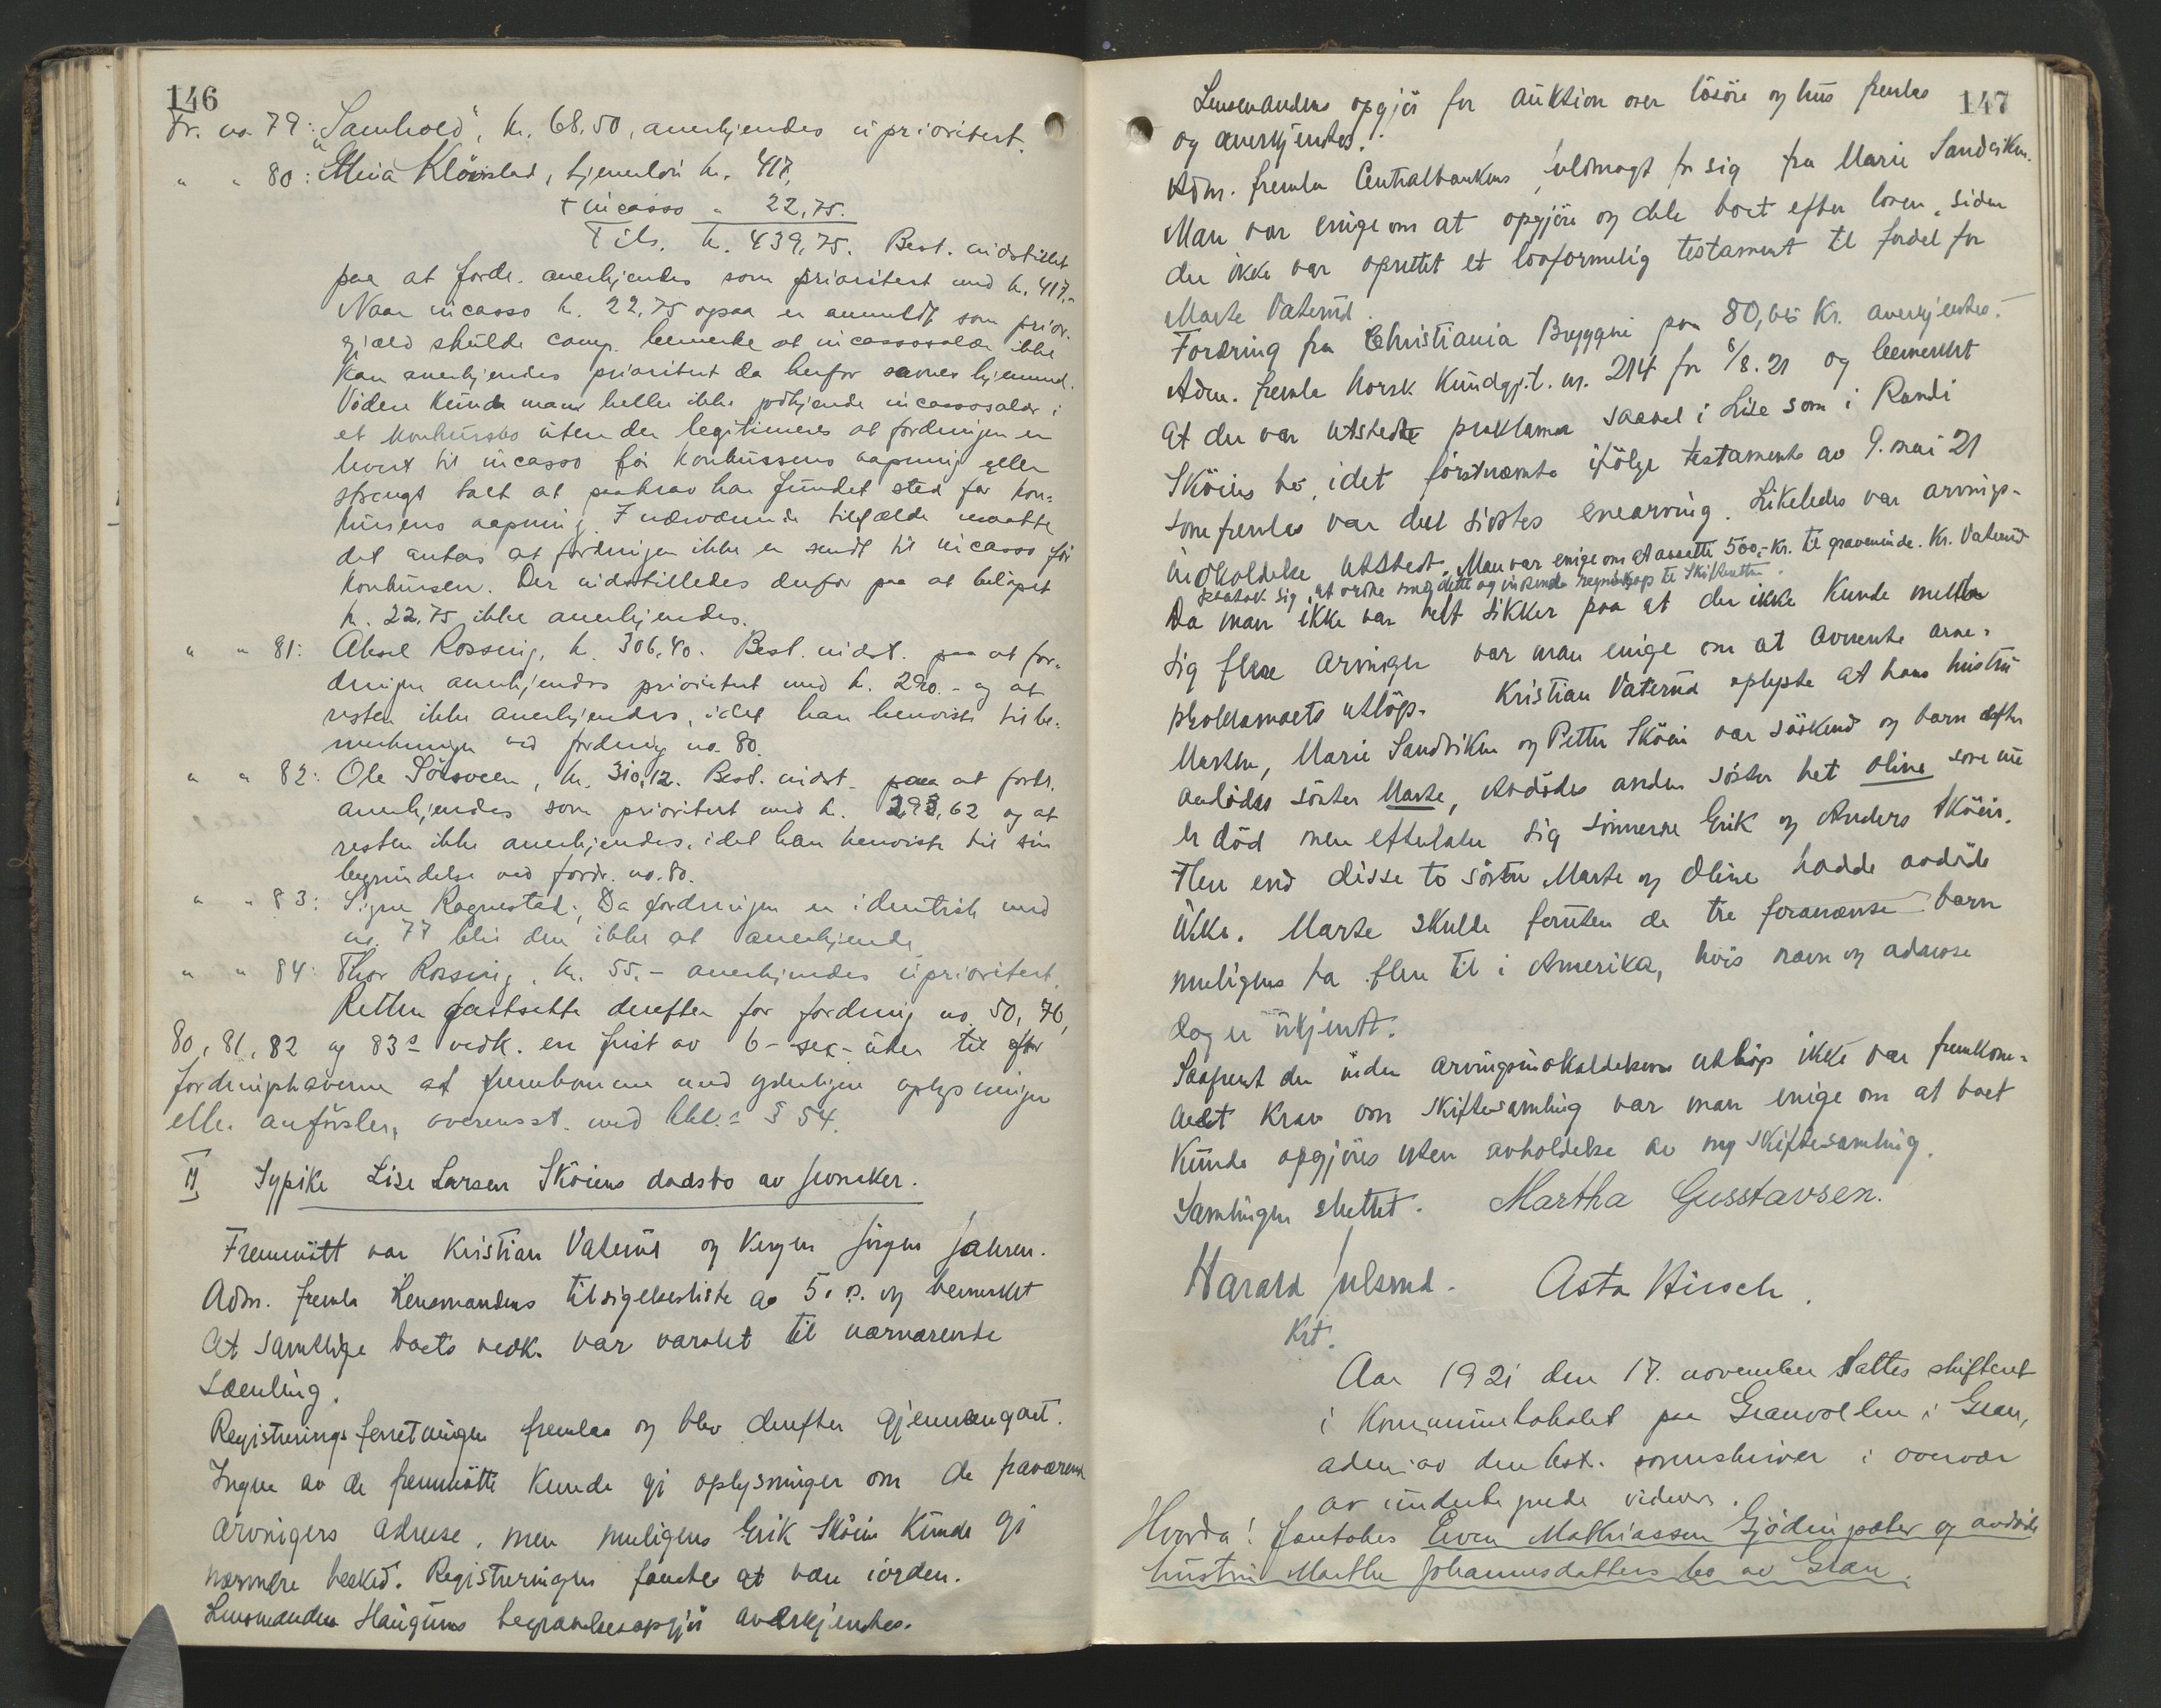 146
Fr. no. 79: "Samhold", kr. 68,50, anerkjendes uprioritert.
" " 80: Mina Klövstad, tjenerlön kr. 417,
+ incasso " 22,75.
Tils. kr. 439,75. Best. indstillet
paa at fordr. anerkjendes som prioritert med kr. 417,-
Naar incasso kr. 22,75 ogsaa er anmeldt som prior.
gjæld skulde comp. bemerke at incassosalær ikke
kan anerkjendes prioritert da herfor savnes hjemmel.
Videre kunde man heller ikke godkjende incassosalær i
et konkursbo uten der legitimeres at fordringen er
levert til incasso för konkursens aapning eller
strengt tat at paakrav har fundet sted för kon-
kursens aapning. I nærværende tilfælde maatte
det antas at fordringen ikke er sendt til incasso för
konkursen. Der indstilledes derfor paa at belöpet
kr. 22,75 ikke anerkjendes.
" " 81: Aksel Rossing, kr. 306,40. Best. indst. paa at for-
dringen anerkjendes prioritert med kr. 290.- og at
resten ikke anerkjendes, idet han henviste til be-
merkningen ved fordring no. 80.
" " 82: Ole Sörsveen, kr. 310,12. Best. indst. paa at fordr.
anerkjendes som prioritert med kr. 293,62 og at
resten ikke anerkjendes, idet han henviste til sin
begrundelse ved fordr. no. 80.
" " 83: Signe Ragnestad; Da fordringen er identisk med
no. 77 blir den ikke at anerkjende.
" " 84: Thor Rossing, kr. 55.- anerkjendes uprioritert.
Retten fastsatte derefter for fordring no. 50, 76,
80, 81, 82 og 83s vedk. en frist av 6 - sex - uker til
fordringshaverne at fremkomme med yderligere oplysninger
eller anförsler, overensst. med kkl.s § 54.
II Sypike Lise Larsen Sköiens dödsbo av Jevnaker.
Fremmött var Kristian Vaterud og Vergen Jörgen Jahren.
Adm. fremla Lensmandens tilsigelsesliste av 5. ds. og bemerket
at samtlige boets vedk. var varslet til nærværende
samling.
Registrerings forretningen fremlaa og blev derefter gjennemgaat.
Ingen av de fremmötte kunde gi oplysninger om de fraværende
arvingers adresse, men muligens Erik Sköien kunde gi
nærmere besked. Registreringen fandtes at være iorden.
Lensmanden Haugums begravelsesopgjör anerkjendtes.
147
Lensmandens opgjör for auktion over lösöre og hus fremlaa
og anerkjendtes.
Adm. fremla Centralbankens fuldmagt for sig fra Marie Sandviken.
Man var enige om at opgjöre og dele boet efter loven, siden
der ikke var oprettet et lovformelig testament til fordel for
Marte Vaterud.
Fordring fra Christiania Bryggeri paa 80,65 Kr. anerkjendtes.
Adm. fremla Norsk Kundgj.t. nr. 214 for 6/8.21 og bemerket
at der var utstedt proklama saavel i Lise som i Randi
Sköiens bo, idet förstnævnte ifölge testamente av 9. mai 21
som fremlaa var den sidstes enearving. Likeledes var arvings-
indkaldelse utstedt. Man var enige om at avsætte 500,- Kr. til gravminde. Kr. Vaterud
paatok sig at ordne med dette og indsende regnskap til Skifteretten.
Da man ikke var helt sikker paa at der ikke kunde melde
sig flere arvinger var man enige om at avvente arve-
proklamaets utlöp. Kristian Vaterud oplyste at hans hustru
Marthe, Marie Sandviken og Petter Sköien var söskend og barn efter
avdödes söster Marte, Avdödes anden söster het Oline som nu
er död men efterlater sig sönnerne Erik og Anders Sköien.
Flere end disse to söstre Marte og Oline hadde avdöde
ikke. Marte skulde foruten de tre forannævnte barn
muligens ha flere til i Amerika, hvis navn og adresse
dog er ukjendt.
Saafremt der inden arvingsindkaldelsens utlöp ikke var fremkom-
met krav om skiftesamling var man enige om at boet
kunde opgjöres uten avholdelse av ny skiftesamling.
Samlingen sluttet. Martha Gusstavsen.
Harald Julsrud. Asta Hirsch.
Kst.
Aar 1921 den 17. november sattes skifteret
i Kommunelokalet paa Granvollen i Gran,
adm. av den kst. sorenskriver i overvær
av undertegnede vidner.
Hvorda! foretokes Even Mathiassen Gjödingsæter og avdöde
hustru Marthe Johannesdatters bo av Gran.